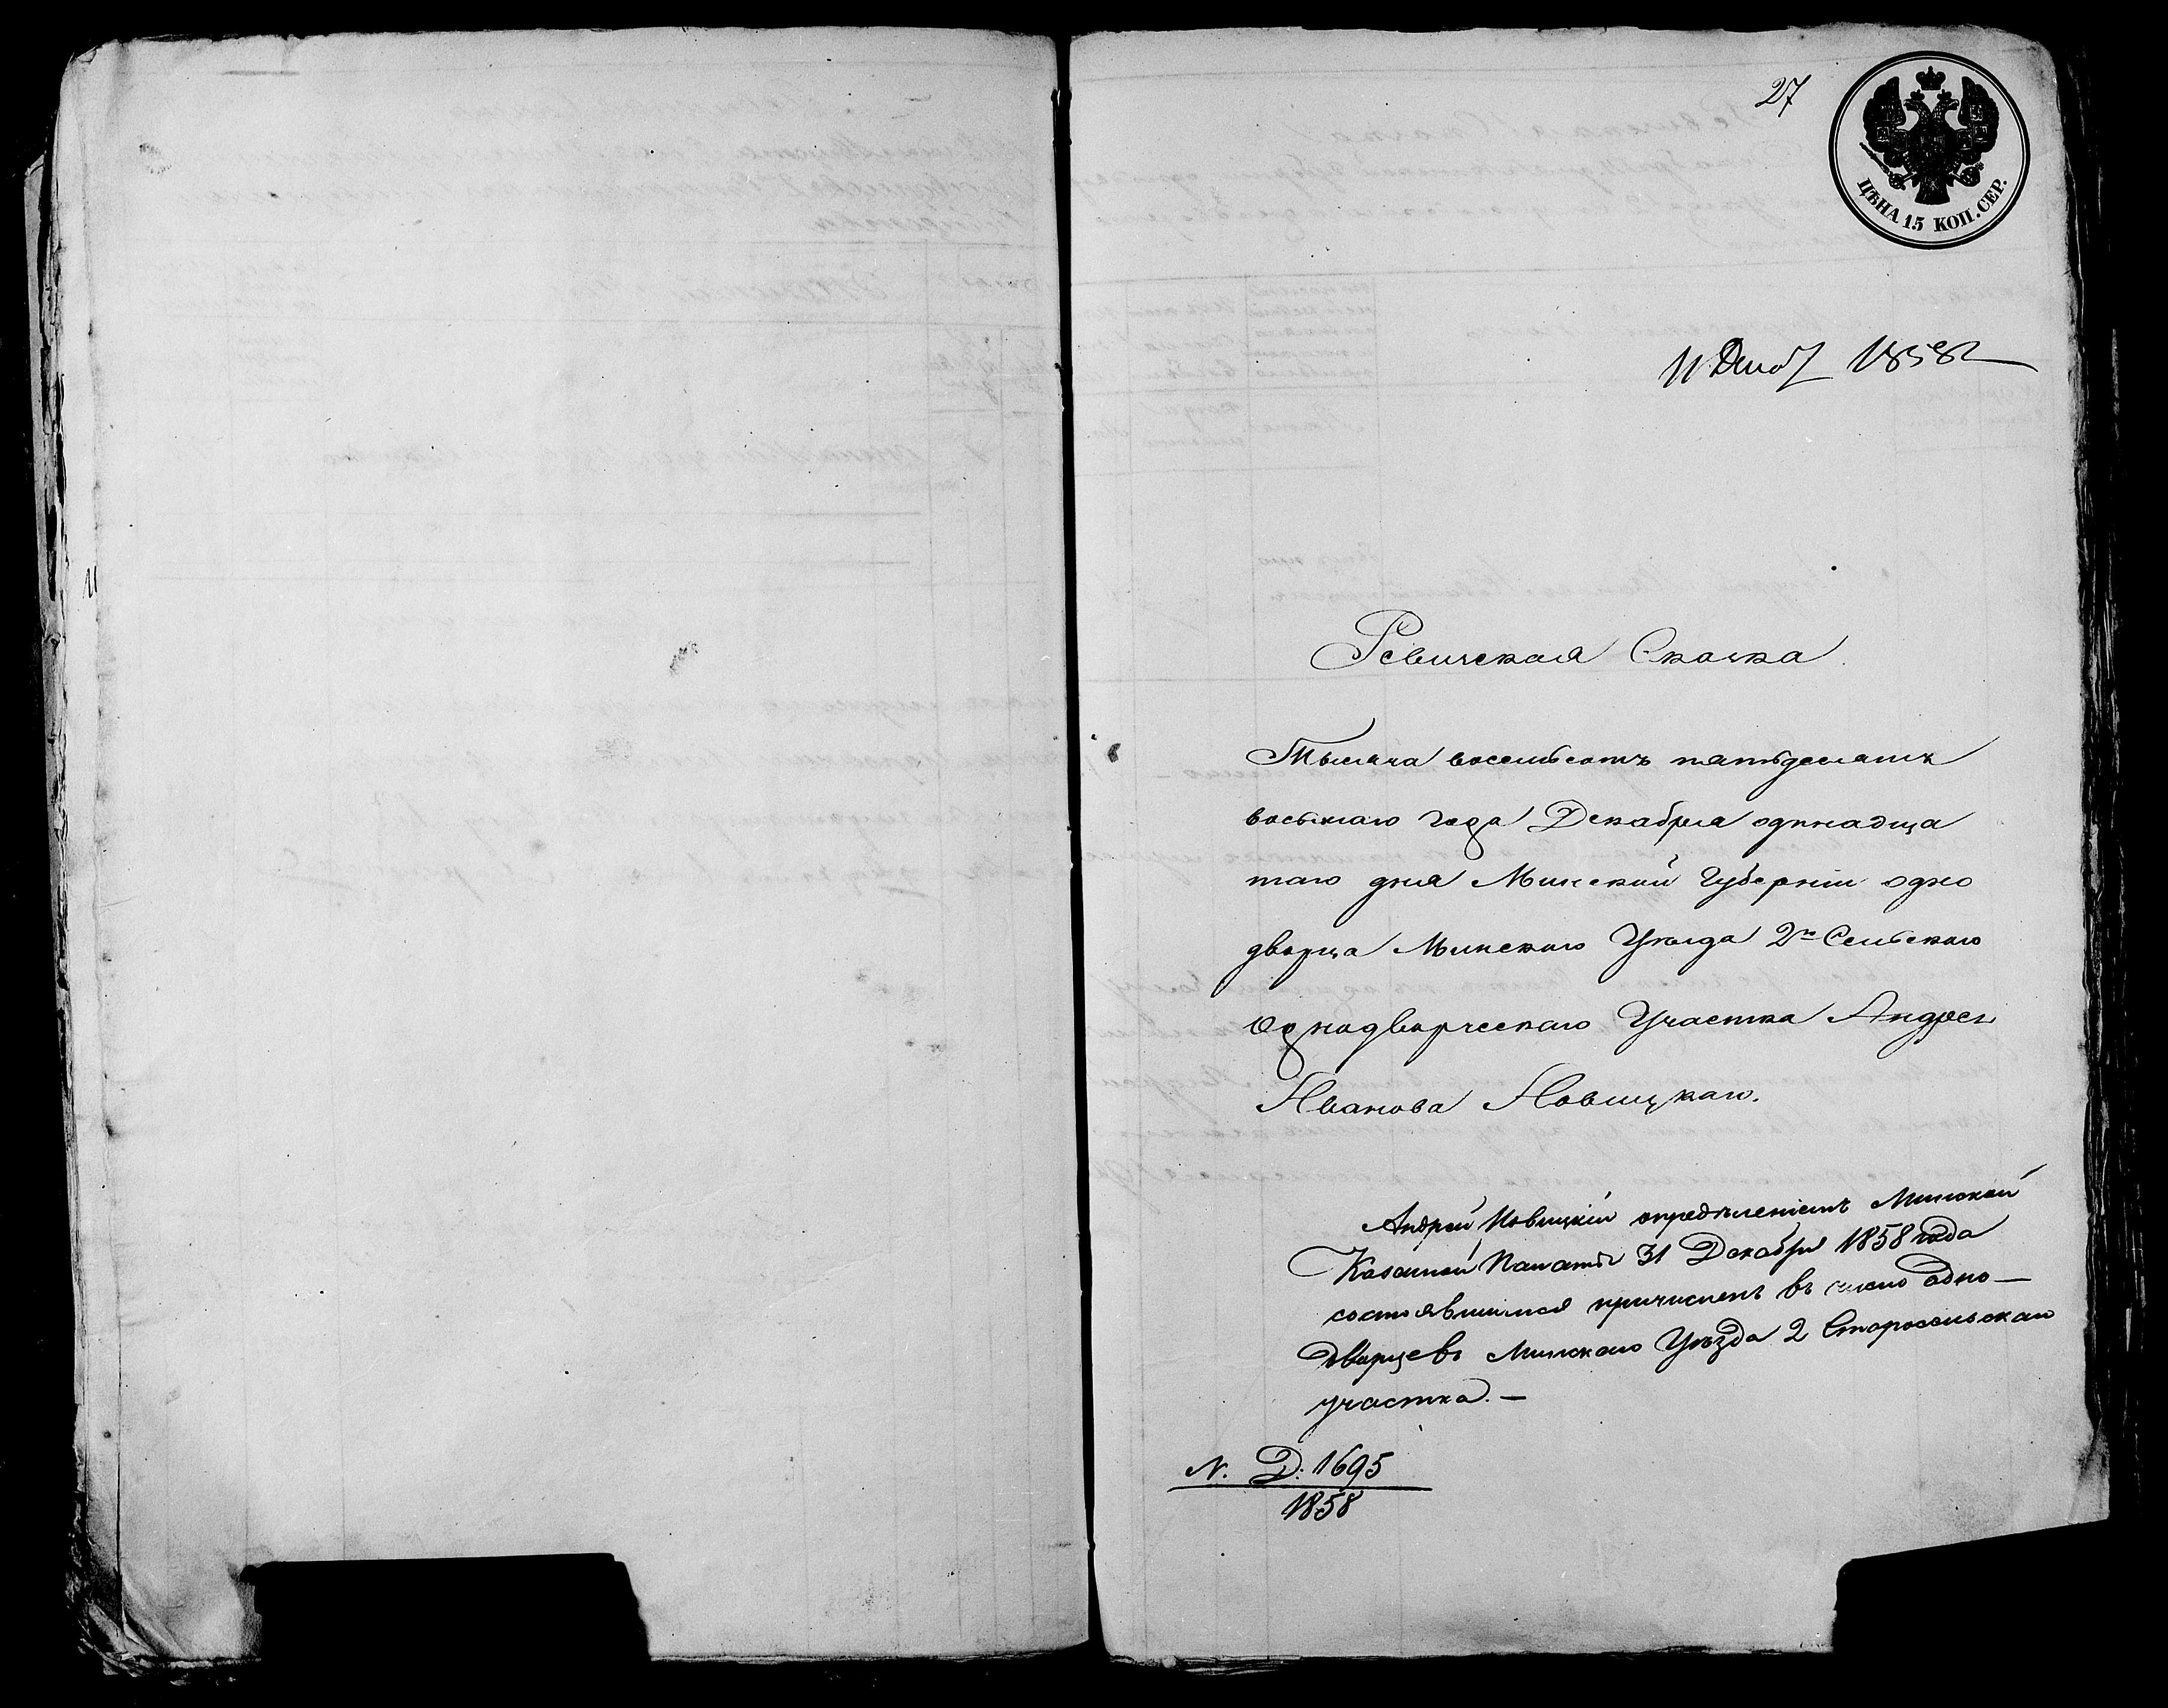 27
ЦѢНА 15 КОП. СЕР.
11 Декаб 1858 г
Ревизская Сказка.
Тысяча восемьсотъ пятьдесятъ
восьмаго года Декабря одинадца
таго дня Минской Губерніи одно
дворца Минскаго Уѣзда 2го Сельскаго
Однодворческаго Участка Андрея
Иванова Новицкаго.
Андрей Новицкій опредѣленіемъ Минской
Казенной Палаты 31 Декабря 1858 года
состоявшимся причисленъ въ число одно—
дворцевъ Минскаго Уѣзда 2 Старосельскаго
участка.—
N. Д: 1695
1858